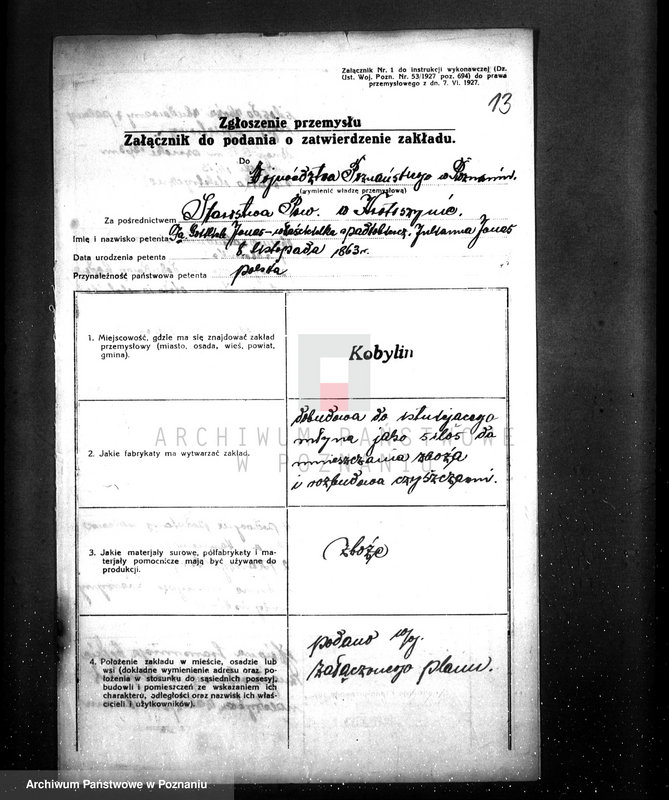 Załącznik Nr. 1 do instrukcji wykonawczej (Dz.
Ust. Woj. Pozn. Nr. 53/1927 poz. 694) do prawa
przemysłowego z dn. 7. VI. 1927.
13
Zgłoszenie przemysłu
Załącznik do podania o zatwierdzenie zakładu.
Do Województwa Poznańskiego w Poznaniu.
(wymienić władzę przemysłową)
Za pośrednictwem Starostwa Pow. w Krotoszynie.
Imię i nazwisko petenta Fa Jonas - właścicielka Julianna Jonas
Data urodzenia petenta listopada 1863 r.
Przynależność państwowa petenta polska
1. Miejscowość, gdzie ma się znajdować zakład
przemysłowy (miasto, osada, wieś, powiat,
gmina).
Kobylin
2. Jakie fabrykaty ma wytwarzać zakład.
dobudowa do istniejącego
młyna jako silos do
umieszczania zboża
i rozbudowa czyszczarni.
3. Jakie materjały surowe, półfabrykaty i ma-
terjały pomocnicze mają być używane do
produkcji.
zboże
4. Położenie zakładu w mieście, osadzie lub
wsi (dokładne wymienienie adresu oraz po-
łożenia w stosunku do sąsiednich posesyj,
budowli i pomieszczeń ze wskazaniem ich
charakteru, adległości oraz nazwisk ich właś-
cicieli i użytkowników).
podano w/g.
załączonego planu.
ARCHIWUM PAŃSTWOWE
W POZNANIU
Archiwum Państwowe w Poznaniu